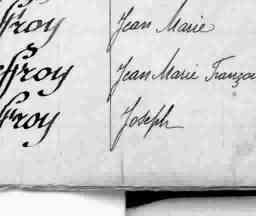 ffroy Jean Marie
ffroy Jean Marie Françoi
ffroy Joseph